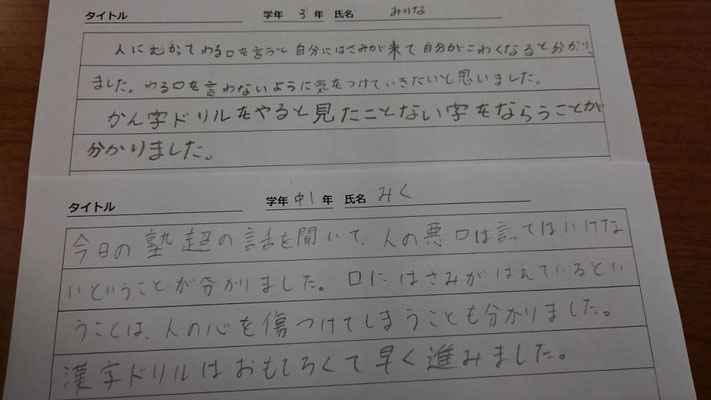 タイトル 学年 3 年 氏名 みりな
人にむかってわる口を言うと自分にはさみが来て自分がこわくなると分かり
ました。わる口を言わないように気をつけていきたいと思いました。
かん字ドリルをやると見たことない字をならうことが
分かりました。
タイトル 学年 中1 年 氏名 みく
今日の塾超の話を聞いて、人の悪口は言ってはいけな
いということが分かりました。口にはさみがはえているとい
うことは、人の心を傷つけてしまうことも分かりました。
漢字ドリルはおもしろくて早く進みました。